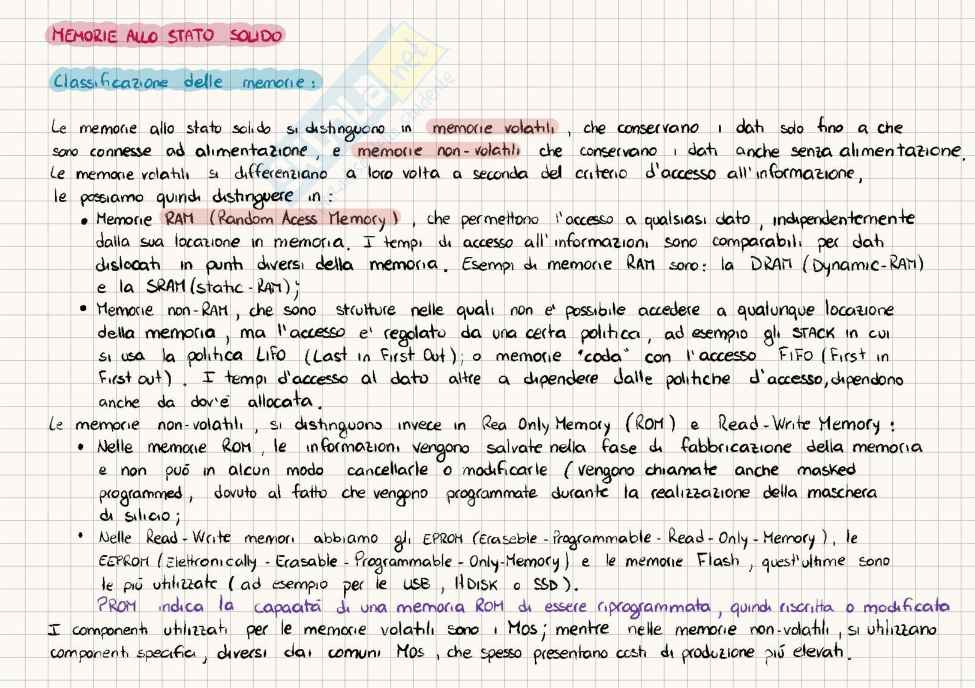 MEMORIE ALLO STATO SOLIDO
Classificazione delle memorie:
Le memorie allo stato solido si distinguono in memorie volatili, che conservano i dati solo fino a che
sono connesse ad alimentazione, e memorie non-volatili che conservano i dati anche senza alimentazione.
Le memorie volatili si differenziano a loro volta a seconda del criterio d'accesso all'informazione,
le possiamo quindi distinguere in:
• Memorie RAM (Random Acess Memory), che permettono l'accesso a qualsiasi dato, indipendentemente
dalla sua locazione in memoria. I tempi di accesso all'informazioni sono comparabili per dati
dislocati in punti diversi della memoria. Esempi di memorie RAM sono: la DRAM (Dynamic-RAM)
e la SRAM (static-RAM);
• Memorie non-RAM, che sono strutture nelle quali non e' possibile accedere a qualunque locazione
della memoria, ma l'accesso e' regolato da una certa politica, ad esempio gli STACK in cui
si usa la politica LIFO (Last in First Out); o memorie "coda" con l'accesso FIFO (First in
First out). I tempi d'accesso al dato altre a dipendere dalle politiche d'accesso, dipendono
anche da dov'è allocata.
Le memorie non-volatili, si distinguono invece in Rea Only Memory (ROM) e Read-Write Memory:
• Nelle memorie ROM, le informazioni vengono salvate nella fase di fabbricazione della memoria
e non può in alcun modo cancellarle o modificarle (vengono chiamate anche masked
programmed, dovuto al fatto che vengono programmate durante la realizzazione della maschera
di silicio;
• Nelle Read-Write memori abbiamo gli EPROM (Eraseble-Programmable-Read-Only-Memory), le
EEPROM (Elettronically-Erasable-Programmable-Only-Memory) e le memorie Flash, quest'ultime sono
le più utilizzate (ad esempio per le USB, HDISK o SSD).
PROM indica la capacità di una memoria ROM di essere riprogrammata, quindi riscritta o modificata
I componenti utilizzati per le memorie volatili sono i MOS; mentre nelle memorie non-volatili, si utilizzano
componenti specifici, diversi dai comuni MOS, che spesso presentano costi di produzione più elevati.